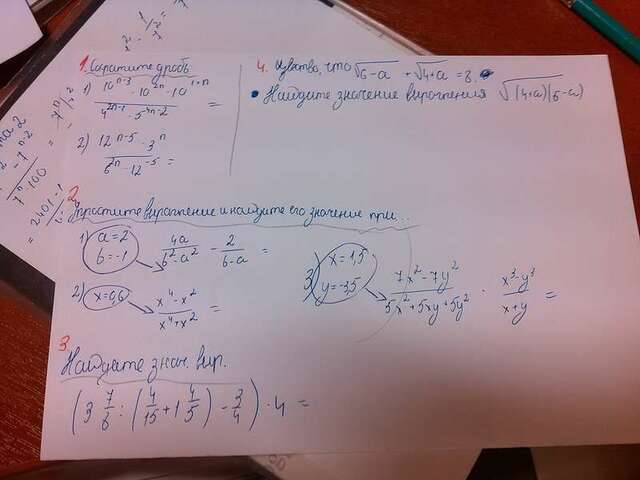 1. Сократите дробь
1) 10^{n-3} · 10^{2n} · 10^{1+n} / 4^{2n-1} · 5^{4n-2} =
2) 12^{n-5} · 3^n / 6^{2n} · 12^{-5} =
4. Известно, что √6-a + √4+a = 8.
• Найдите значение выражения √(4+a)(6-a)
2. Упростите выражение и найдите его значение при...
1) a=2 b=-1 4a / b²-a² - 2 / b-a =
2) x=0,6 x⁴-x² / x⁴+x² =
3) x=1,5 y=-3,5 7x²-7y² / 5x²+5xy+5y² · x³-y³ / x+y =
3.
Найдите знач. выр.
(3 7/6 : (4/15 + 1 4/5) - 3/4) · 4 =